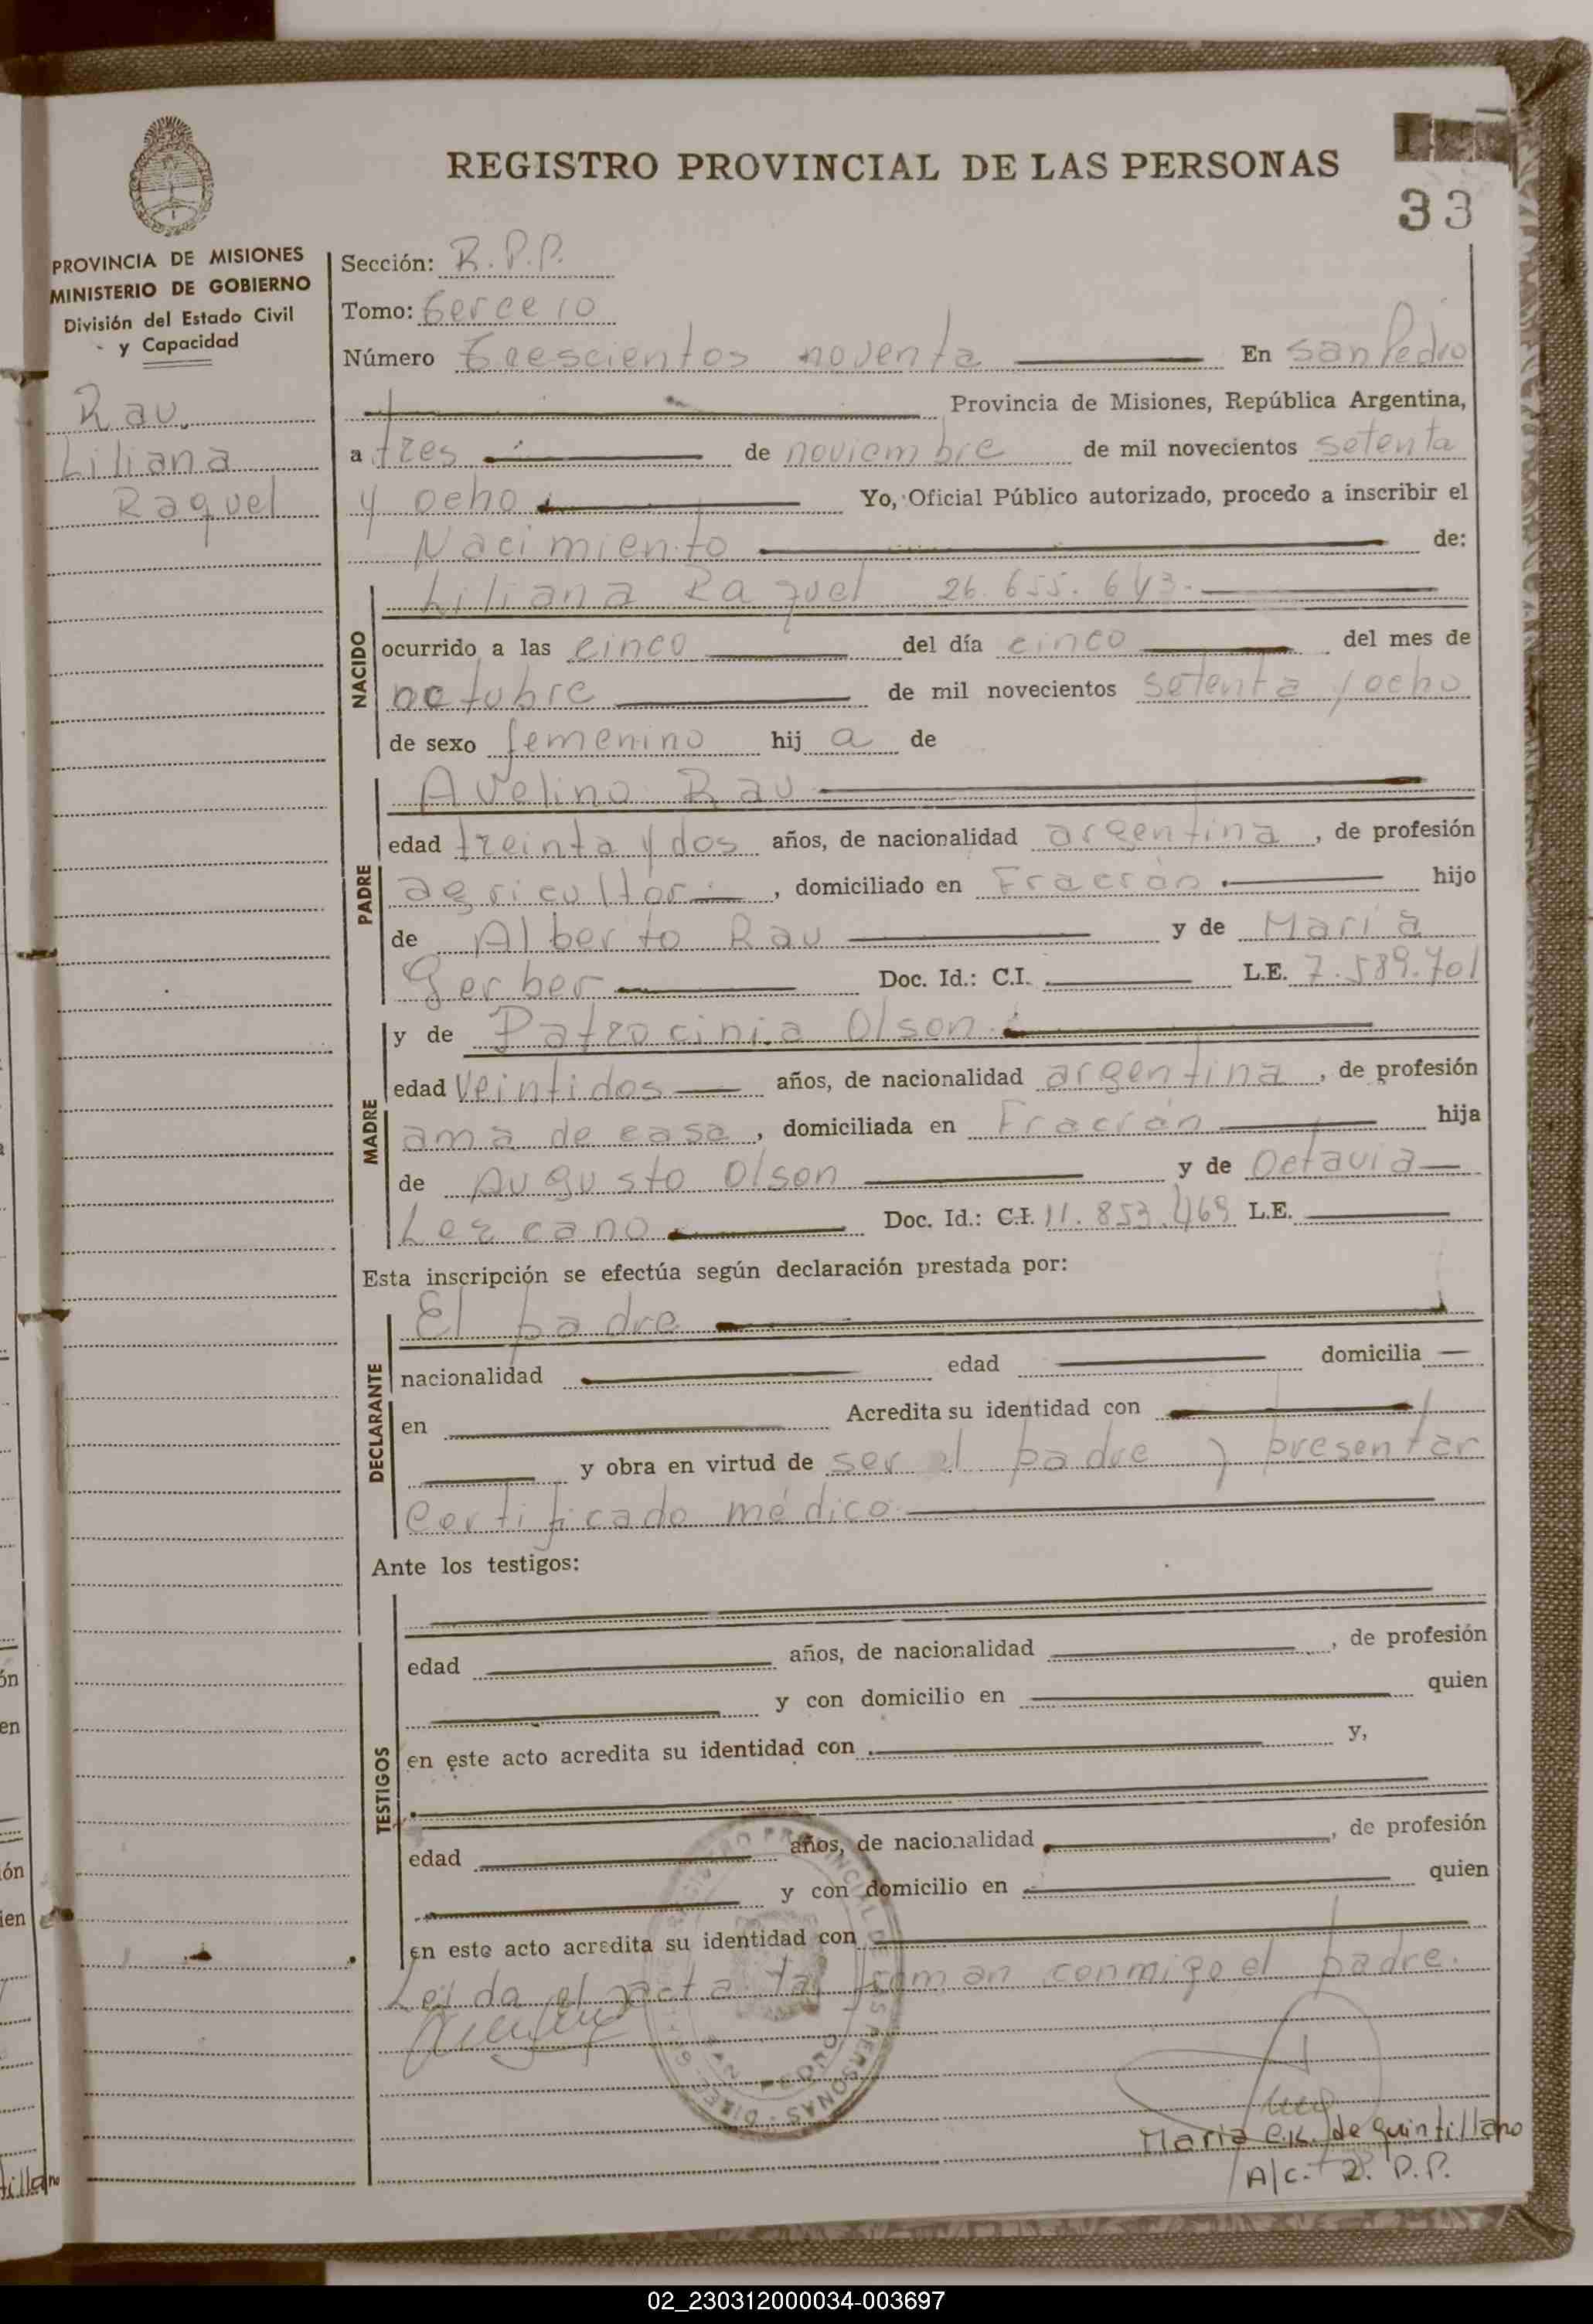 REGISTRO PROVINCIAL DE LAS PERSONAS
33
PROVINCIA DE MISIONES
MINISTERIO DE GOBIERNO
División del Estado Civil
y Capacidad
Rau
Liliana
Raquel
Sección: R.P.P.
Tomo: tercero
Número trescientos noventa En San Pedro
Provincia de Misiones, República Argentina,
a tres de noviembre de mil novecientos setenta
y ocho Yo, Oficial Público autorizado, procedo a inscribir el
Nacimiento de:
NACIDO
Liliana Raquel 26.655.643.
ocurrido a las cinco del día cinco del mes de
octubre de mil novecientos setenta y ocho
de sexo femenino hij a de
PADRE
Avelino Rau
edad treinta y dos años, de nacionalidad argentina, de profesión
agricultor, domiciliado en Fracrán hijo
de Alberto Rau y de María
Gerber Doc. Id.: C.I. L.E. 7.589.701
MADRE
y de Patrocinia Olson
edad Veintidos años, de nacionalidad argentina, de profesión
ama de casa, domiciliada en Fracrán hija
de Augusto Olson y de Octavia
Lezcano Doc. Id.: C.I. 11.853.469 L.E.
Esta inscripción se efectúa según declaración prestada por:
DECLARANTE
El padre
nacionalidad edad domicilia
en Acredita su identidad con
y obra en virtud de ser el padre y presentar
certificado médico
Ante los testigos:
TESTIGOS
edad años, de nacionalidad, de profesión
y con domicilio en quien
en este acto acredita su identidad con y,
edad años, de nacionalidad, de profesión
y con domicilio en quien
en este acto acredita su identidad con
Leída el acta la firman conmigo el padre.
María C.K. de Quintillano
A/c. R.P.P.
02_230312000034-003697